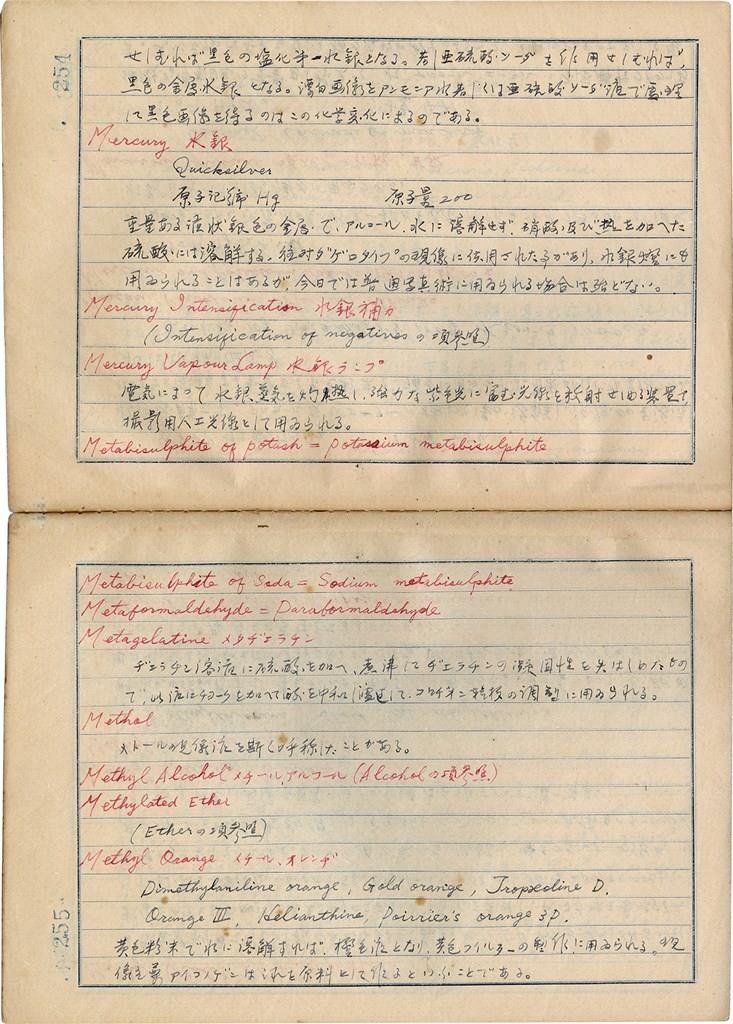 254
せしむれば黒色の塩化第一水銀となる。若し亜硫酸ソーダを作用せしむれば、
黒色の金属水銀となる。漂白画像をアンモニア水若しくは亜硫酸ソーダ液で処理
して黒色画像を得るのはこの化学変化によるのである。
Mercury 水銀
Quicksilver
原子記号 Hg 原子量 200
重量ある液状銀色の金属で、アルコール、水に溶解せず、硝酸及び熱を加へた
硫酸には溶解する。往時ダゲロタイプの現像に使用された事があり、水銀にも
用ゐられることはあるが、今日では普通写真術に用ゐられる場合は殆どない。
Mercury Intensification 水銀補力
(Intensification of negatives の項参照)
Mercury Vapour Lamp 水銀ランプ
電気によつて水銀蒸気を灼熱し、強力な紫色光に富む光線を放射せしめる装置で、
撮影用人工光線として用ゐられる。
Metabisulphite of potash = potassium metabisulphite
Metabisulphite of Soda = Sodium metabisulphite
Metaformaldehyde = Paraformaldehyde
Metagelatine メタヂェラチン
ヂェラチン溶液に硫酸を加へ、煮沸してヂェラチンの凝固性を失はしめたもの
で、此液にチョークを加へて酸を中和し濾過して、コロヂオン乾板の調製に用ゐられる。
Methol
メトールの現像液を斯く呼称したことがある。
Methyl Alcohol メチール、アルコール (Alcohol の項参照)
Methylated Ether
(Ether の項参照)
Methyl Orange メチール、オレンヂ
Dimethylaniline orange, Gold orange, Tropæoline D.
Orange III, Helianthine, Poirrier's orange 3P.
黄色粉末で水に溶解すれば、橙色液となり、黄色フィルターの製作に用ゐられる。現
像主薬アイコノゲンは之を原料として作るといふことである。
255